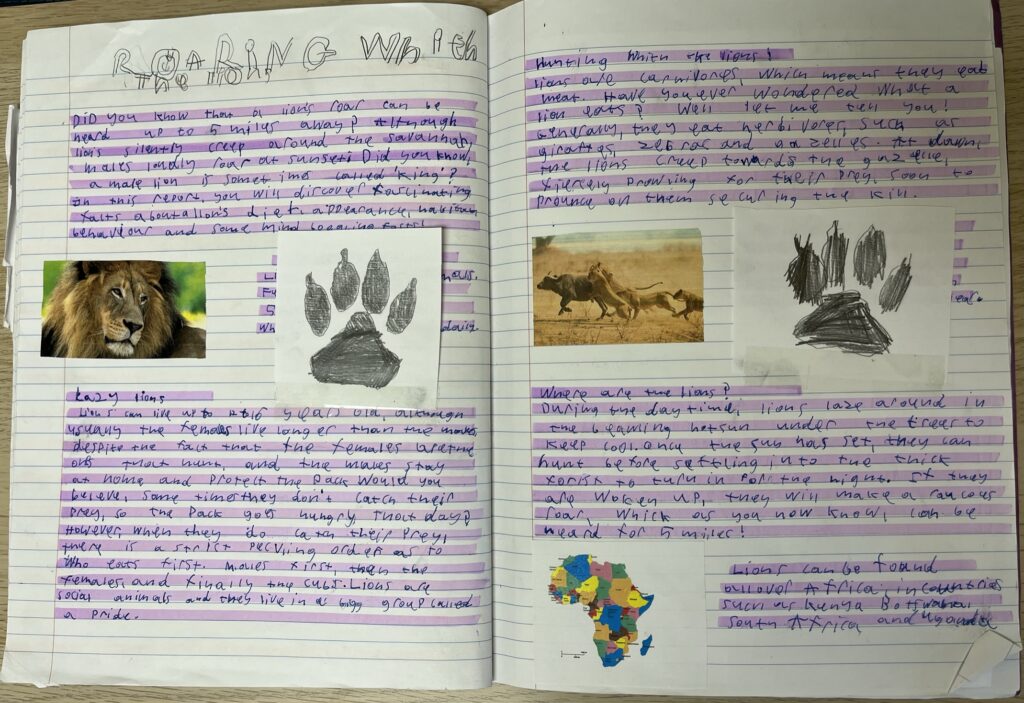 ROARING Whith
the lion!
DiD you know that a lion's roar can be
heard up to 5 miles away? Although
lions silently creep around the savannah,
males loudly roar at sunset! Did you know,
a male lion is sometimes called 'king'?
In this report, you will discover fascinating
facts about a lion's diet, appearance, habitat,
behaviour and some mind boggling facts!
Wh daily.
Lazy lions
Lions can live up to 16 years old, although
usually the females live longer than the males
despite the fact that the females are the
ones that hunt, and the males stay
at home and protect the pack. Would you
believe, some times they don't catch their
prey, so the pack goes hungry that day?
However, when they do catch their prey,
there is a strict pecking order as to
who eats first. Males first, then the
females, and finally the cubs. Lions are
social animals and they live in a bigg group called
a pride.
Hunting Whith the lions!
lions are carnivores, which means they eat
meat. Have you ever wondered what a
lion eats? Well let me tell you!
Generally, they eat herbivores, such as
giraffes, zebras and gazelles. At dawn,
the lions creep towards the gazelle,
fiercely prowling for their prey, soon to
prounce on them securing the kill.
Where are the lions?
During the day time, lions laze around in
the beaming hot sun under the trees to
keep cool. once the sun has set, they can
hunt before settling into the thick
forist to turn in for the night. If they
are woken up, they will make a raucous
roar, which as you now know, can be
heard for 5 miles!
Lions can be found
all over Africa, in countries
such as Kenya Botswana
South Africa and Uganda